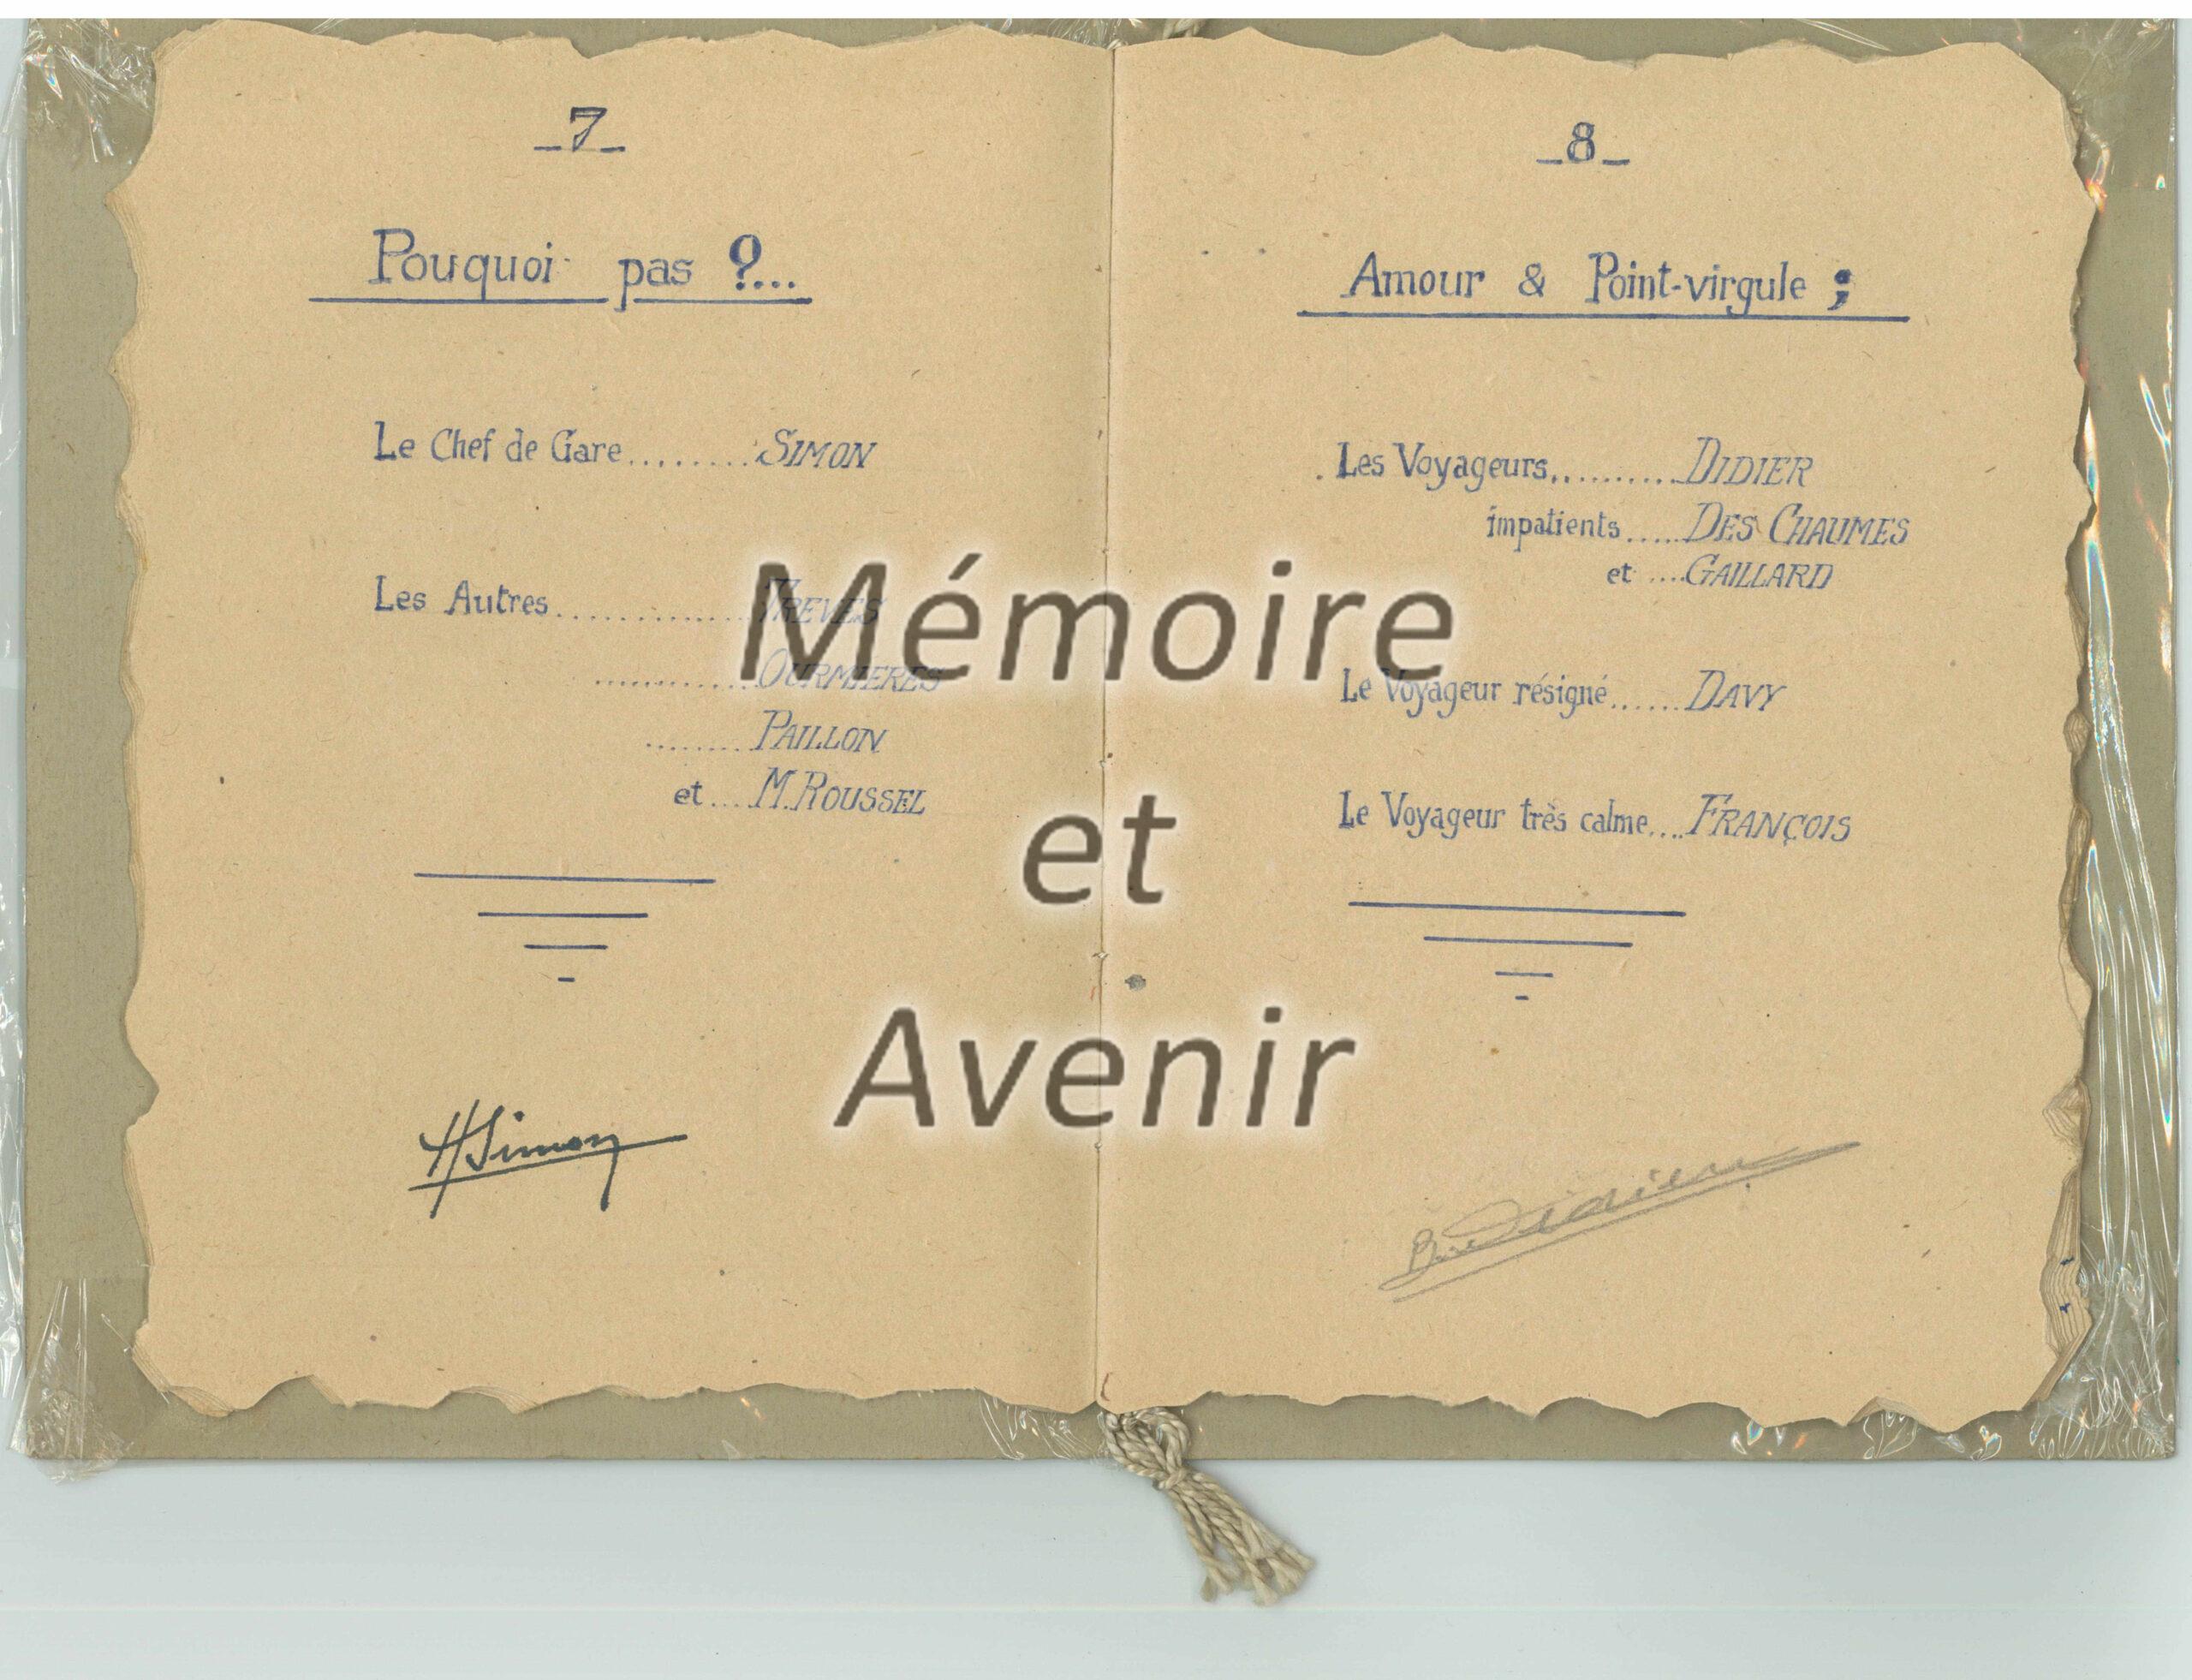 _7_
Pouquoi pas ?...
Le Chef de Gare.........SIMON
Les Autres..............TREVES
............OURMIERES
........PAILLON
et....M. ROUSSEL
H Simon
_8_
Amour & Point-virgule ;
Les Voyageurs...........DIDIER
impatients.....DES CHAUMES
et ....GAILLARD
Le Voyageur résigné......DAVY
Le Voyageur très calme....FRANÇOIS
Mémoire
et
Avenir